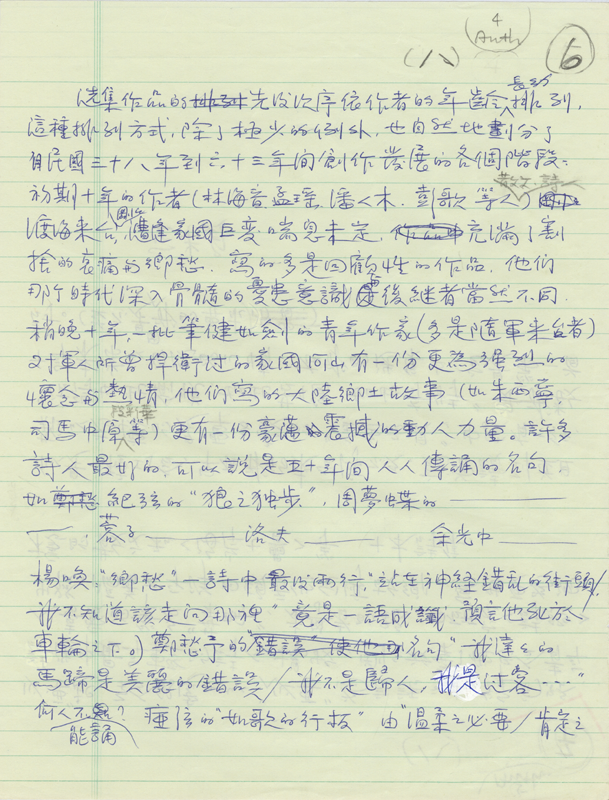 4
Auth
(八)
6
選集作品的先後次序依作者的年齡長幼排列,
這種排列方式,除了極少的例外,也自然地劃分了
自民國三十八年到六十三年間創作發展的各個階段:
初期十年的作者(林海音、孟瑤、潘人木、彭歌等人)散文、詩人
渡海來台,遭逢家國巨變,喘息未定,充滿了割
捨的哀痛與鄉愁,寫的多是回顧性的作品,他們
那個時代深入骨髓的憂患意識與後繼者當然不同.
稍晚十年,一批筆健如劍的青年作家(多是隨軍來台者)
對軍人所曾捍衛過的家國河山有一份更為強烈的
懷念與熱情,他們寫的大陸鄉土故事(如朱西寧,
司馬中原、段彩華等)更有一份豪蕩震撼的動人力量。許多
詩人最好的,可以說是五十年間人人傳誦的名句,
如紀弦的"狼之独步",周夢蝶的
蓉子 洛夫 余光中
楊喚"鄉愁"一詩中最後兩行,"站在神経錯乱的街頭/
我不知道該走向那裡"竟是一語成讖,預言他死於
車輪之下。)鄭愁予的名句"我達達的
馬蹄是美麗的錯誤/我不是歸人,我是过客……"
何人不能誦? 瘂弦的"如歌的行板"由"温柔之必要/肯定之